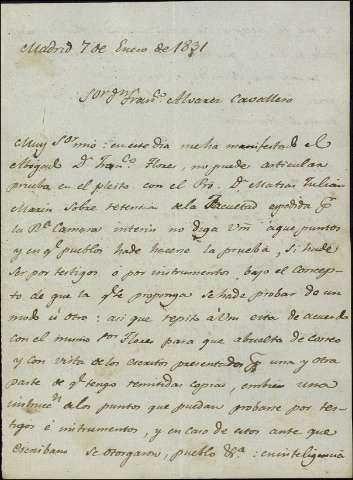 Madrid 7 de Enero de 1831
Sor. Dn. Franco. Alvarez Cavallero
Muy Sor. mio: en este dia me ha manifestado el
Abogado Dn. Franco. Flores, no puede articular
prueba en el pleito con el Dn. Matias Julian
Marin sobre retencion de la facultad expedida pr.
la Rl. Camara interin no diga Vm. a que puntos
y en qe. pueblos ha de hacerse la prueba, si ha de
ser por testigos ó por instrumento, bajo el concep-
to de que la qe. se proponga se ha de probar de un
modo ú otro: asi que repito á Vm. esta de acuerdo
con el mismo Sor. Flores para que abuelta de correo
y con vista de los escritos presentados pr. una y otra
parte de qe. tengo remitidas copias, embie una
instruccn. de los puntos que puedan probarse por tes-
tigos é instrumentos, y en caso de estos ante que
Escribano se otorgaron, pueblo &a.: en inteligencia